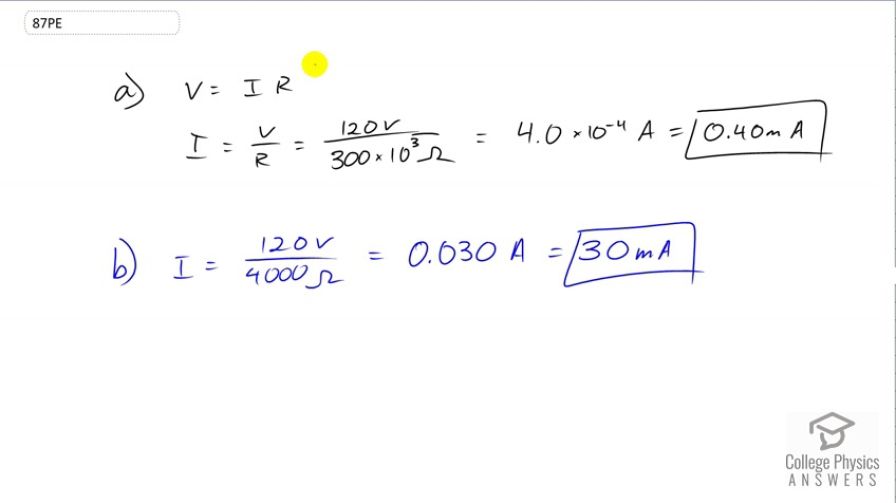 87PE
a) V = I R
I = V/R = 120V/300×10³Ω = 4.0 ×10⁻⁴ A = 0.40mA
b) I = 120V/4000Ω = 0.030 A = 30mA
College Physics
ANSWERS